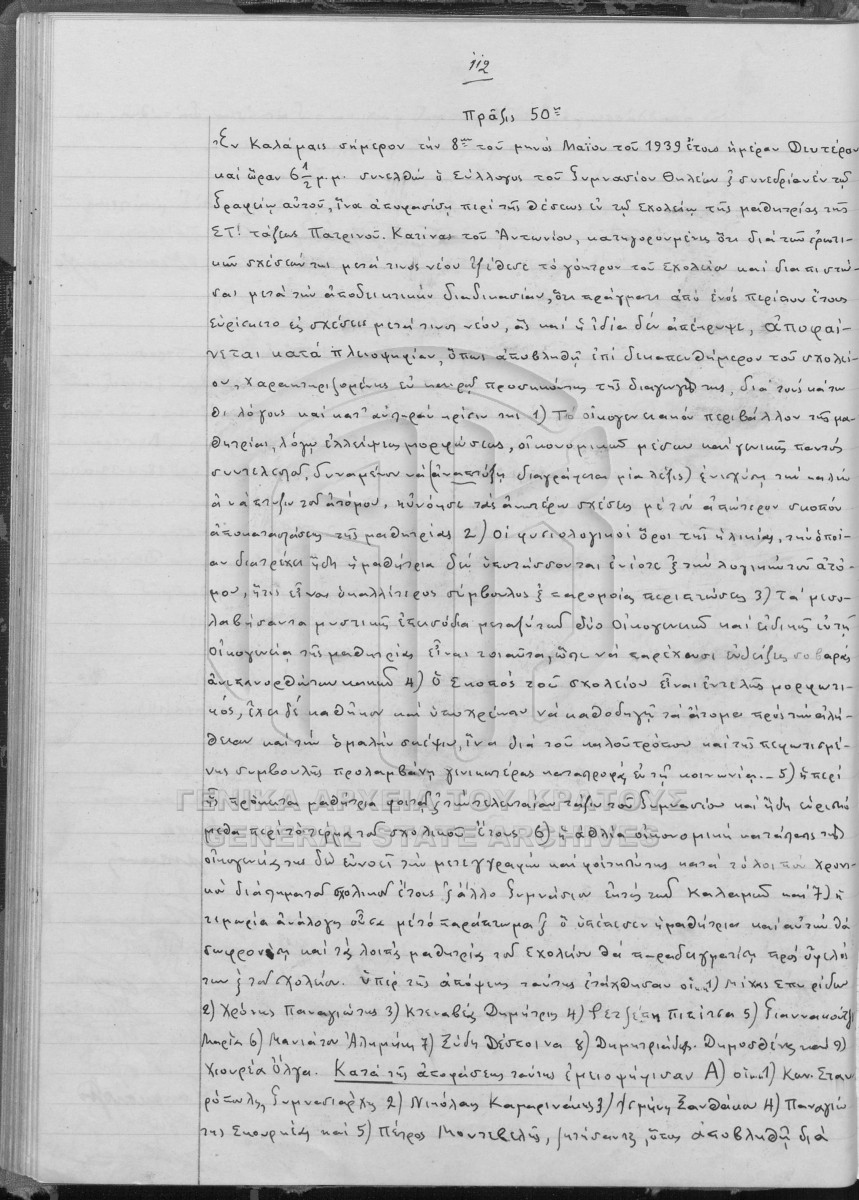 112
Πρᾶξις 50ή
Ἐν Καλάμαις σήμερον τήν 8ην τοῦ μηνός Μαΐου τοῦ 1939 ἔτους ἡμέραν Δευτέραν
καί ὥραν 6 1/2 μ.μ. συνελθών ὁ Σύλλογος τοῦ Γυμνασίου Θηλέων εἰς συνεδρίαν ἐν τῷ
Γραφείῳ αὐτοῦ, ἵνα ἀποφασίσῃ περί τῆς θέσεως ἐν τῷ Σχολείῳ τῆς μαθητρίας τῆς
ΣΤ! τάξεως Πατρινοῦ Κατίνας τοῦ Ἀντωνίου, κατηγορουμένης ὅτι διά τῶν ἐρωτι-
κῶν σχέσεών της μετά τινος νέου ἐξέθεσε τό γόητρον τοῦ Σχολείου καί διαπιστώ-
σαν μετά τήν ἀποδεικτικήν διαδικασίαν, ὅτι πράγματι ἀπό ἑνός περίπου ἔτους
εὑρίσκετο εἰς σχέσεις μετά τινος νέου, ἅς καί ἡ ἰδία δέν ἀπέκρυψε, ἀποφαί-
νεται κατά πλειοψηφίαν, ὅπως ἀποβληθῇ ἐπί δεκαπενθήμερον τοῦ σχολεί-
ου, χαρακτηριζομένης ἐν καιρῷ προσηκόντως τῆς διαγωγῆς της, διά τούς κάτω
θι λόγους καί κατ' αὐστηράν κρίσιν της 1) Τό οἰκογενειακόν περιβάλλον τῆς μα-
θητρίας, λόγῳ ἐλλείψεως μορφώσεως, οἰκονομικῶν μέσων καί γενικῆς παντός
συντελεστοῦ, δυναμένου νά (ἀναπτύξῃ διαγράφεται μία λέξις) ἐνισχύσῃ τήν καλήν
ἀνάπτυξιν τοῦ ἀτόμου, ηὐνόησε τάς ἀνωτέρω σχέσεις μέ τόν ἀπώτερον σκοπόν
ἀποκαταστάσεως τῆς μαθητρίας 2) Οἱ φυσιολογικοί ὅροι τῆς ἡλικίας, τήν ὁποί-
αν διατρέχει ἤδη ἡ μαθήτρια δέν ὑποτάσσονται ἐνίοτε εἰς τήν λογικήν τοῦ ἀτό-
μου, ἥτις εἶναι ὁ καλλίτερος σύμβουλος εἰς παρομοίας περιπτώσεις 3) Τά μεσο-
λαβήσαντα μυστικῆς ἐπεισόδια μεταξύ τῶν δύο οἰκογενειῶν καί εἰδικῶς ἐν τῇ
οἰκογενείᾳ τῆς μαθητρίας εἶναι τοιαῦτα, ὥστε νά παρέχωσι ἐνδείξεις σοβαράς
ἀνεπανορθώτων κακῶν 4) ὁ Σκοπός τοῦ σχολείου εἶναι ἐντελῶς μορφωτι-
κός, ἔχει δέ καθῆκον καί ὑποχρέωσιν νά καθοδηγῇ τά ἄτομα πρός τήν ἀλή-
θειαν καί τήν ὁμαλήν σκέψιν, ἵνα διά τοῦ καλοῦ τρόπου καί τῆς πεφωτισμέ-
νης συμβουλῆς προλαμβάνῃ γενικωτέρας καταστροφάς ἐν τῇ κοινωνίᾳ. – 5) ἡ περί
ἧς πρόκειται μαθήτρια φοιτᾷ εἰς τήν τελευταίαν τάξιν τοῦ Γυμνασίου καί ἤδη εὑρισκό
μεθα περί τό τέρμα τοῦ σχολικοῦ ἔτους 6) ἡ ἀθλία οἰκονομική κατάστασις τῆς
οἰκογενείας της δέν εὐνοεῖ τήν μετεγγραφήν καί φοίτησίν της κατά τό λοιπόν χρονι-
κόν διάστημα τοῦ σχολικοῦ ἔτους εἰς ἄλλο Γυμνάσιον ἐκτός τῶν Καλαμῶν καί 7) ἡ
τιμωρία ἀνάλογος οὖσα μέ τό παράπτωμα εἰς ὅ ὑπέπεσεν ἡ μαθήτρια καί αὐτήν θά
σωφρονίσῃ καί τάς λοιπάς μαθητρίας τοῦ Σχολείου θά παραδειγματίσῃ πρός ὄφελός
των καί τοῦ σχολείου. Ὑπέρ τῆς ἀπόψεως ταύτης ἐτάχθησαν οἱ κ.κ. 1) Μίχας Σπυρίδων
2) Χρόνης Παναγιώτης 3) Κτεναβέας Δημήτριος 4) Πιπίτσα 5) Γιαννακοῦ
Μαρία 6) Μανιάτου 7) Ξύδη Δέσποινα 8) Δημητριάδης Δημοσθένης καί 9)
Χιουρέα Ὄλγα. Κατά τῆς ἀποφάσεως ταύτης ἐμειοψήφισαν Α) οἱ κ.κ. 1) Κων. Σταυ
ρόπουλος Γυμνασιάρχης 2) Νικόλαος Καμαρινάκης 3) Ἰσμήνη Ξανθάκου 4) Παναγιώ
της Σκουρλέας καί 5) Πέτρος Μοντεβελής, ζητήσαντες, ὅπως ἀποβληθῇ διά
ΓΕΝΙΚΑ ΑΡΧΕΙΑ ΤΟΥ ΚΡΑΤΟΥΣ
GENERAL STATE ARCHIVES